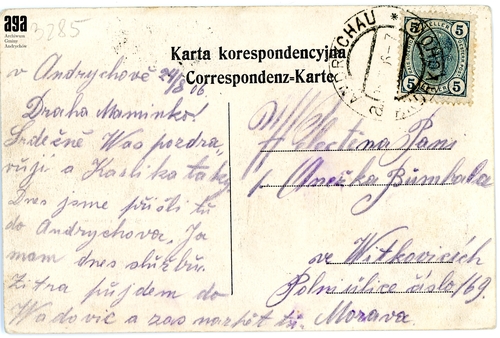 aga
Archiwum
Gminy
Andrychów
3285
Karta korespondencyjna
Correspondenz-Karte
ANDRYCHAU
5 5
5 5
v Andrychově 29/8 06
Draha Maminko!
Srdečně Was pozdra-
vuji a Karlika taky
Dnes jsme přišli tu
do Andrychova, Ja
mam dnes službu.
Zitra půjdem do
Wadovic a zas nazpět tu.
Ctěna Pani
Anežka Bumbala
ve Witkovicích
Polní ulice číslo 169.
Morava.